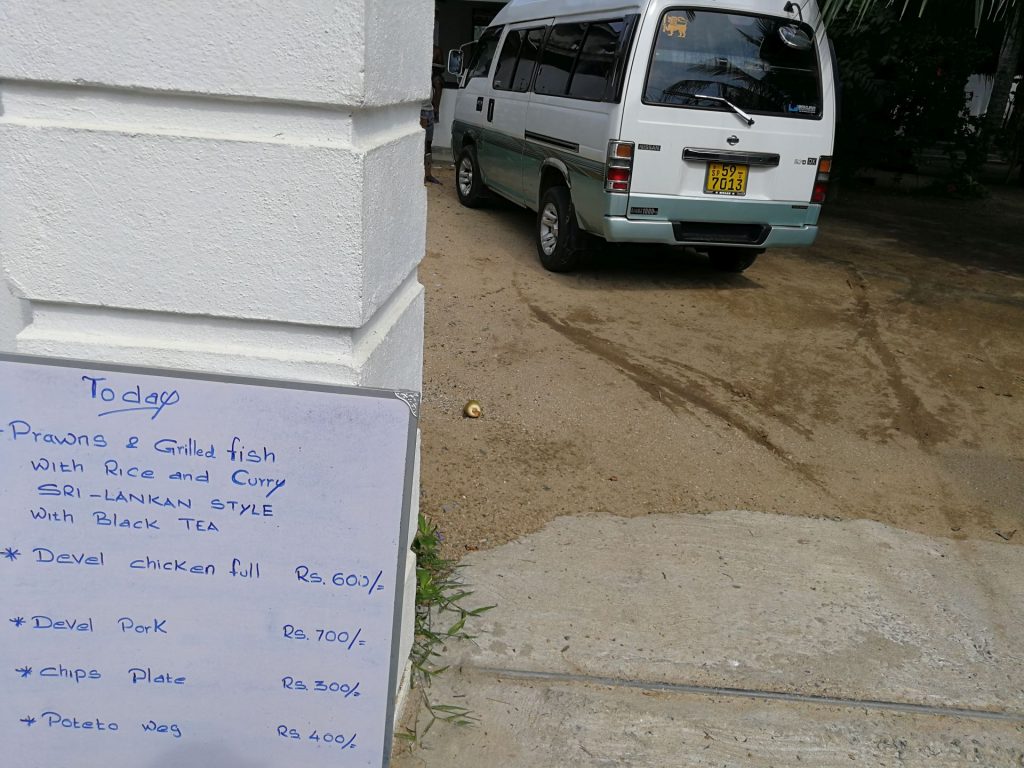 Today
Prawns & Grilled fish
with Rice and Curry
SRI-LANKAN STYLE
with Black TEA
* Devel chicken full Rs. 600/=
* Devel Pork Rs. 700/=
* Chips Plate Rs. 300/=
* Poteto weg Rs. 400/=
NISSAN
59
7013